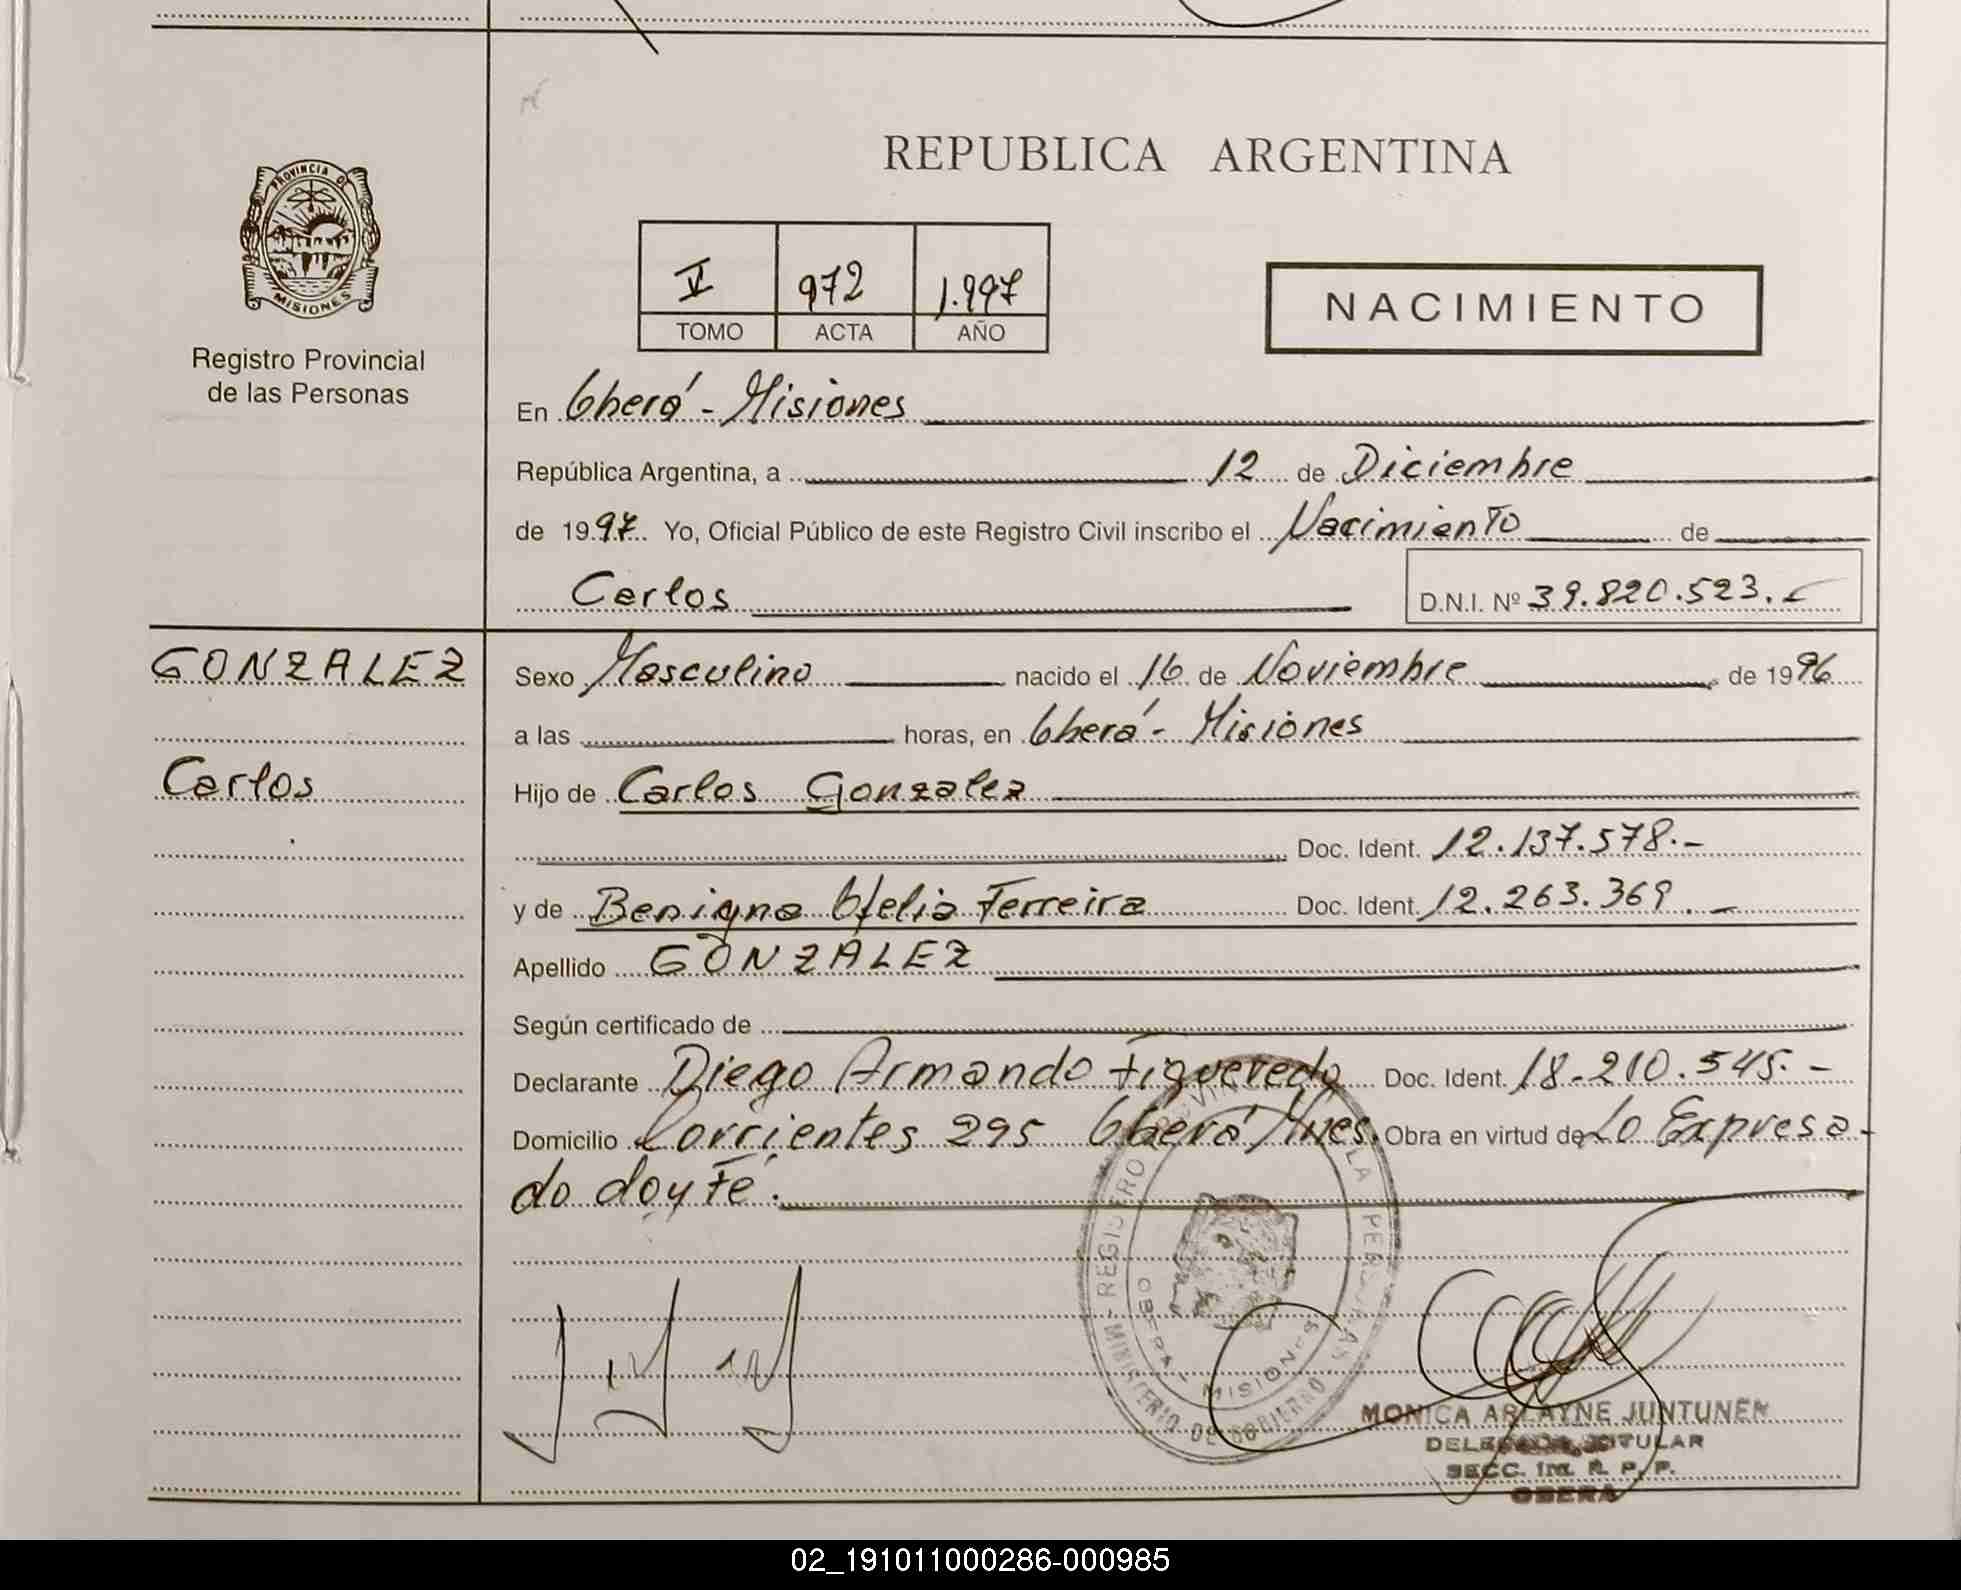 PROVINCIA DE
MISIONES
Registro Provincial
de las Personas
REPUBLICA ARGENTINA
V 972 1.997
TOMO ACTA AÑO
NACIMIENTO
En Oberá - Misiones
República Argentina, a 12 de Diciembre
de 1997 Yo, Oficial Público de este Registro Civil inscribo el Nacimiento de
Carlos D.N.I. Nº 39.820.523.-
GONZALEZ
Carlos
Sexo Masculino nacido el 16 de Noviembre de 1996
a las horas, en Oberá - Misiones
Hijo de Carlos Gonzalez
Doc. Ident. 12.137.578.-
y de Benigna Ofelia Ferreira Doc. Ident. 12.263.369.-
Apellido GONZALEZ
Según certificado de
Declarante Diego Armando Figueredo Doc. Ident. 18.210.545.-
Domicilio Corrientes 295 Oberá Mnes. Obra en virtud de Lo Expresa-
do doy Fé.
REGISTRO PROVINCIAL DE LAS PERSONAS
MINISTERIO DE GOBIERNO
OBERA MISIONES
MONICA ARLAYNE JUNTUNEN
DELEGADA TITULAR
SECC. 1ra. R. P. P.
OBERA
02_191011000286-000985